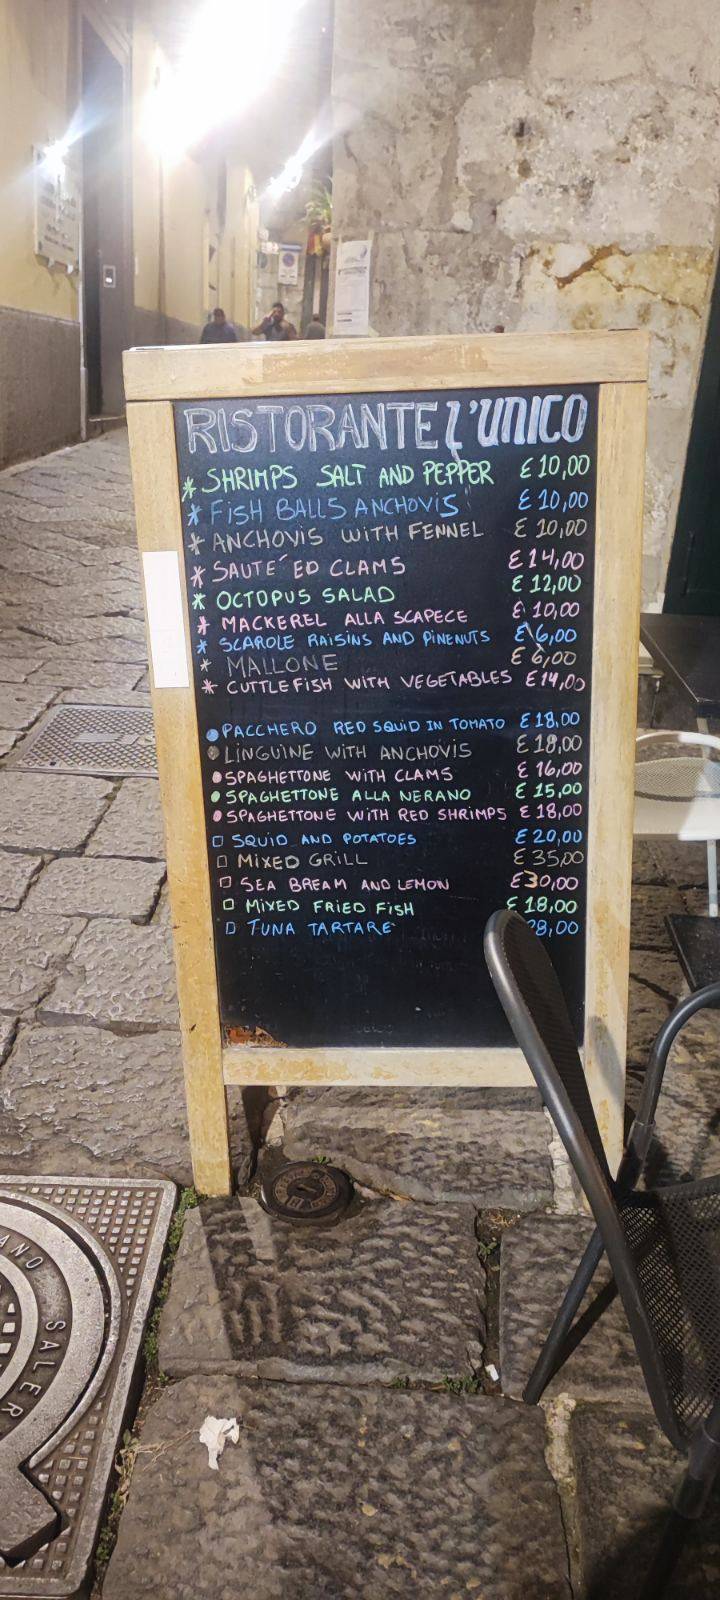 RISTORANTE L'UNICO
* SHRIMPS SALT AND PEPPER € 10,00
* FISH BALLS ANCHOVIS € 10,00
* ANCHOVIS WITH FENNEL € 10,00
* SAUTE´ED CLAMS € 14,00
* OCTOPUS SALAD € 12,00
* MACKEREL ALLA SCAPECE € 10,00
* SCAROLE RAISINS AND PINENUTS € 6,00
* MALLONE € 6,00
* CUTTLEFISH WITH VEGETABLES € 14,00
• PACCHERO RED SQUID IN TOMATO € 18,00
• LINGUINE WITH ANCHOVIS € 18,00
• SPAGHETTONE WITH CLAMS € 16,00
• SPAGHETTONE ALLA NERANO € 15,00
• SPAGHETTONE WITH RED SHRIMPS € 18,00
□ SQUID AND POTATOES € 20,00
□ MIXED GRILL € 35,00
□ SEA BREAM AND LEMON € 30,00
□ MIXED FRIED FISH € 18,00
□ TUNA TARTARE 8,00
ANO SALER